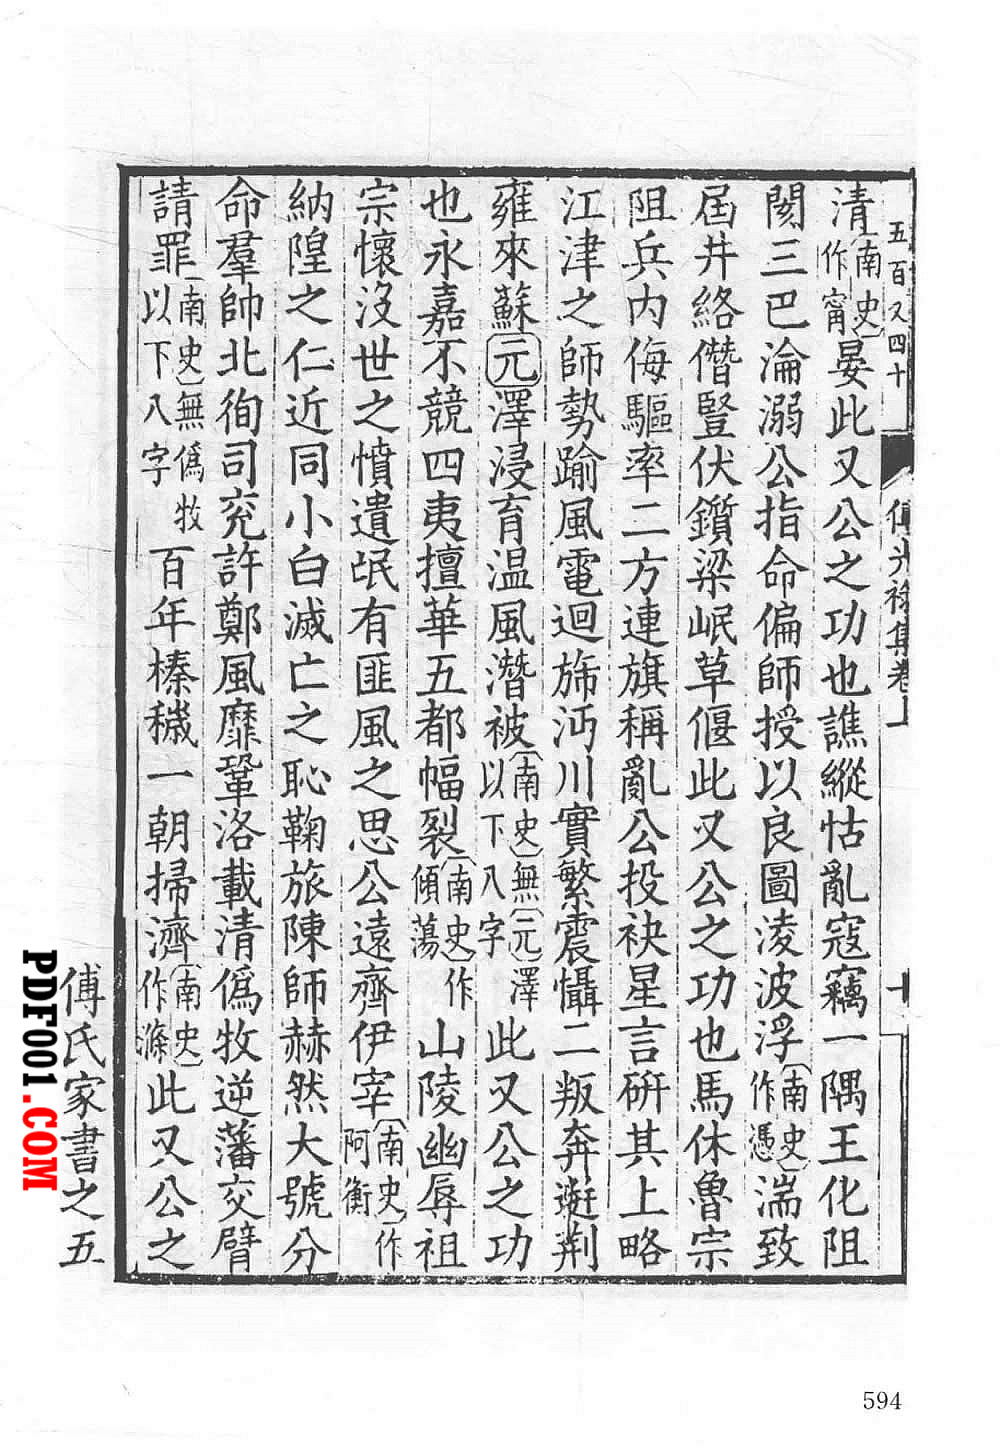 五百又四十
傅光祿集卷上
十
清〔南史〕作甯晏此又公之功也譙縱怙亂寇竊一隅王化阻
閡三巴淪溺公指命偏師授以良圖淩波浮〔南史〕作憑湍致
屆井絡僭豎伏鑕梁岷草偃此又公之功也馬休魯宗
阻兵内侮驅率二方連旗稱亂公投袂星言硏其上略
江津之師勢踰風電迴旆沔川實繁震懾二叛奔迸荆
雍來蘇元澤浸育温風潛被〔南史〕無〔元〕澤以下八字此又公之功
也永嘉不競四夷擅華五都幅裂〔南史〕作傾蕩山陵幽辱祖
宗懷沒世之憤遺氓有匪風之思公遠齊伊宰〔南史〕作阿衡
納隍之仁近同小白滅亡之恥鞠旅陳師赫然大號分
命羣帥北徇司兖許鄭風靡鞏洛載清僞牧逆藩交臂
請罪〔南史〕無僞牧以下八字百年榛穢一朝掃濟〔南史〕作滌此又公之
傅氏家書之五
PDF001.COM
594